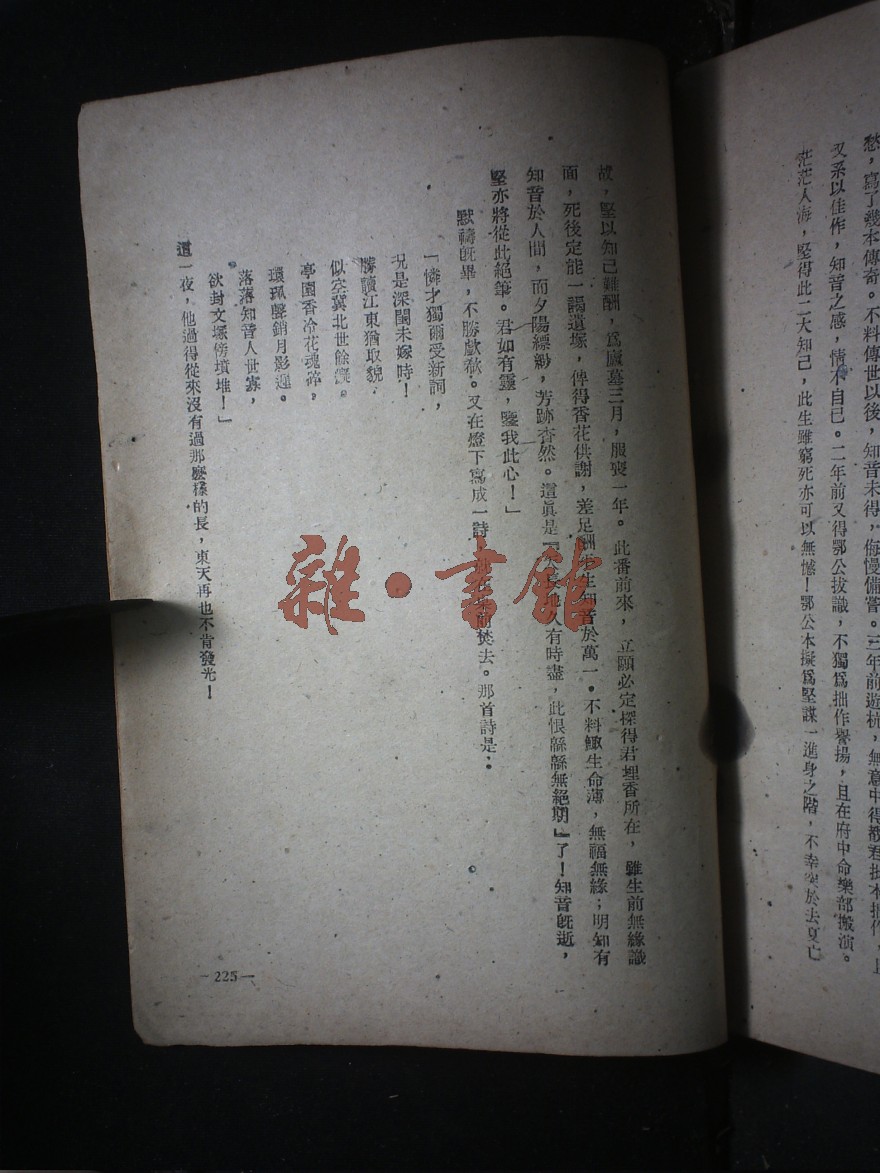 愁，寫了幾本傳奇。不料傳世以後，知音未得，侮慢備嘗。三年前遊杭，無意中得
又系以佳作，知音之感，情不自已。二年前又得鄂公拔識，不獨爲拙作譽揚，且在府中命樂部搬演。
茫茫人海，堅得此二大知己，此生雖窮死亦可以無憾！鄂公本擬爲堅謀一進身之階，不幸突於去夏亡
故，堅以知己難酬，爲廬墓三月，服喪一年。此番前來，立願必定探得君埋香所在，雖生前無緣識
面，死後定能一謁遺塚，俾得香花供謝，差足酬平生知音於萬一。不料鯫生命薄，無福無緣；明知有
知音於人間，而夕陽縹緲，芳跡杳然。這眞是『天長地久有時盡，此恨緜緜無絕期』了！知音旣逝，
堅亦將從此絕筆。君如有靈，鑒我此心！」
默禱旣畢，不勝歔欷。又在燈下寫成一詩，焚去。那首詩是：
「憐才獨爾受新詞，
況是深閨未嫁時！
賸牘江東猶取貌，
似空冀北世餘癡。
亭園香冷花魂碎，
環珮聲銷月影遲。
落落知音人世寡，
欲封文塚傍墳堆！」
這一夜，他過得從來沒有過那麽樣的長，東天再也不肯發光！
—225—
雜·書館